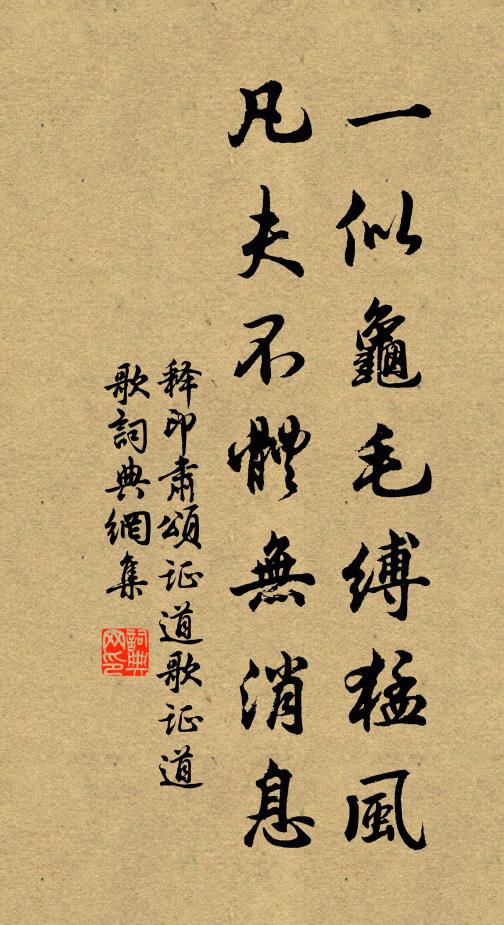 一似龜毛縛猛風
凡夫不體無消息
释印肃頌证道歌证道
歌詞典網集
詞典
网印